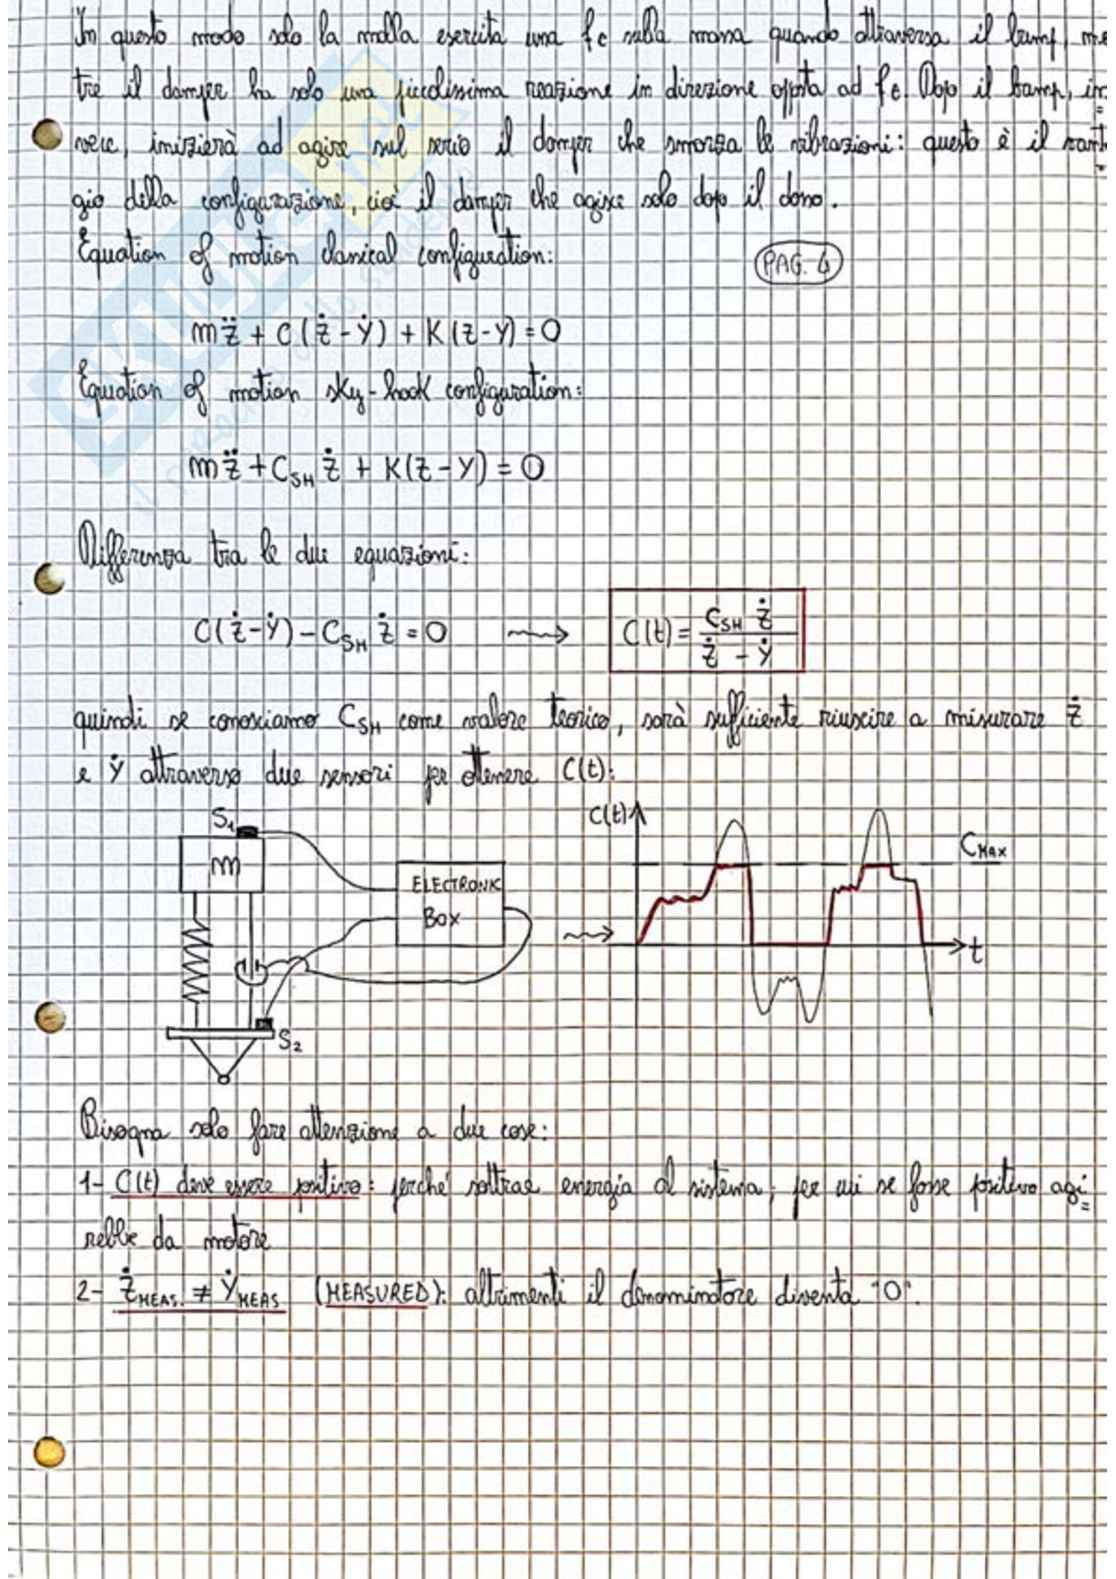 In questo modo solo la molla esercita una fc sulla massa quando attraversa il bump, men
tre il damper ha solo una piccolissima reazione in direzione opposta ad fc. Dopo il bump, in=
vece, inizierà ad agire sul serio il damper che smorza le vibrazioni: questo è il vant=
gio della configurazione, cioè il damper che agisce solo dopo il dosso.
Equation of motion classical configuration:
PAG. 4
mz̈ + C(ż - ẏ) + K(z - y) = 0
Equation of motion sky-hook configuration:
mz̈ + C_SH ż + K(z - y) = 0
Differenza tra le due equazioni:
C(ż - ẏ) - C_SH ż = 0 ⟿ C(t) = C_SH ż / (ż - ẏ)
quindi se conosciamo C_SH come valore teorico, sarà sufficiente riuscire a misurare ż
e ẏ attraverso due sensori per ottenere C(t):
S1
m
ELECTRONIC
BOX
S2
C(t)
CMAX
t
Bisogna solo fare attenzione a due cose:
1- C(t) deve essere positivo: perché sottrae energia al sistema, per cui se fosse positivo agi=
rebbe da motore
2- ż MEAS. ≠ ẏ MEAS (MEASURED): altrimenti il denominatore diventa "0".